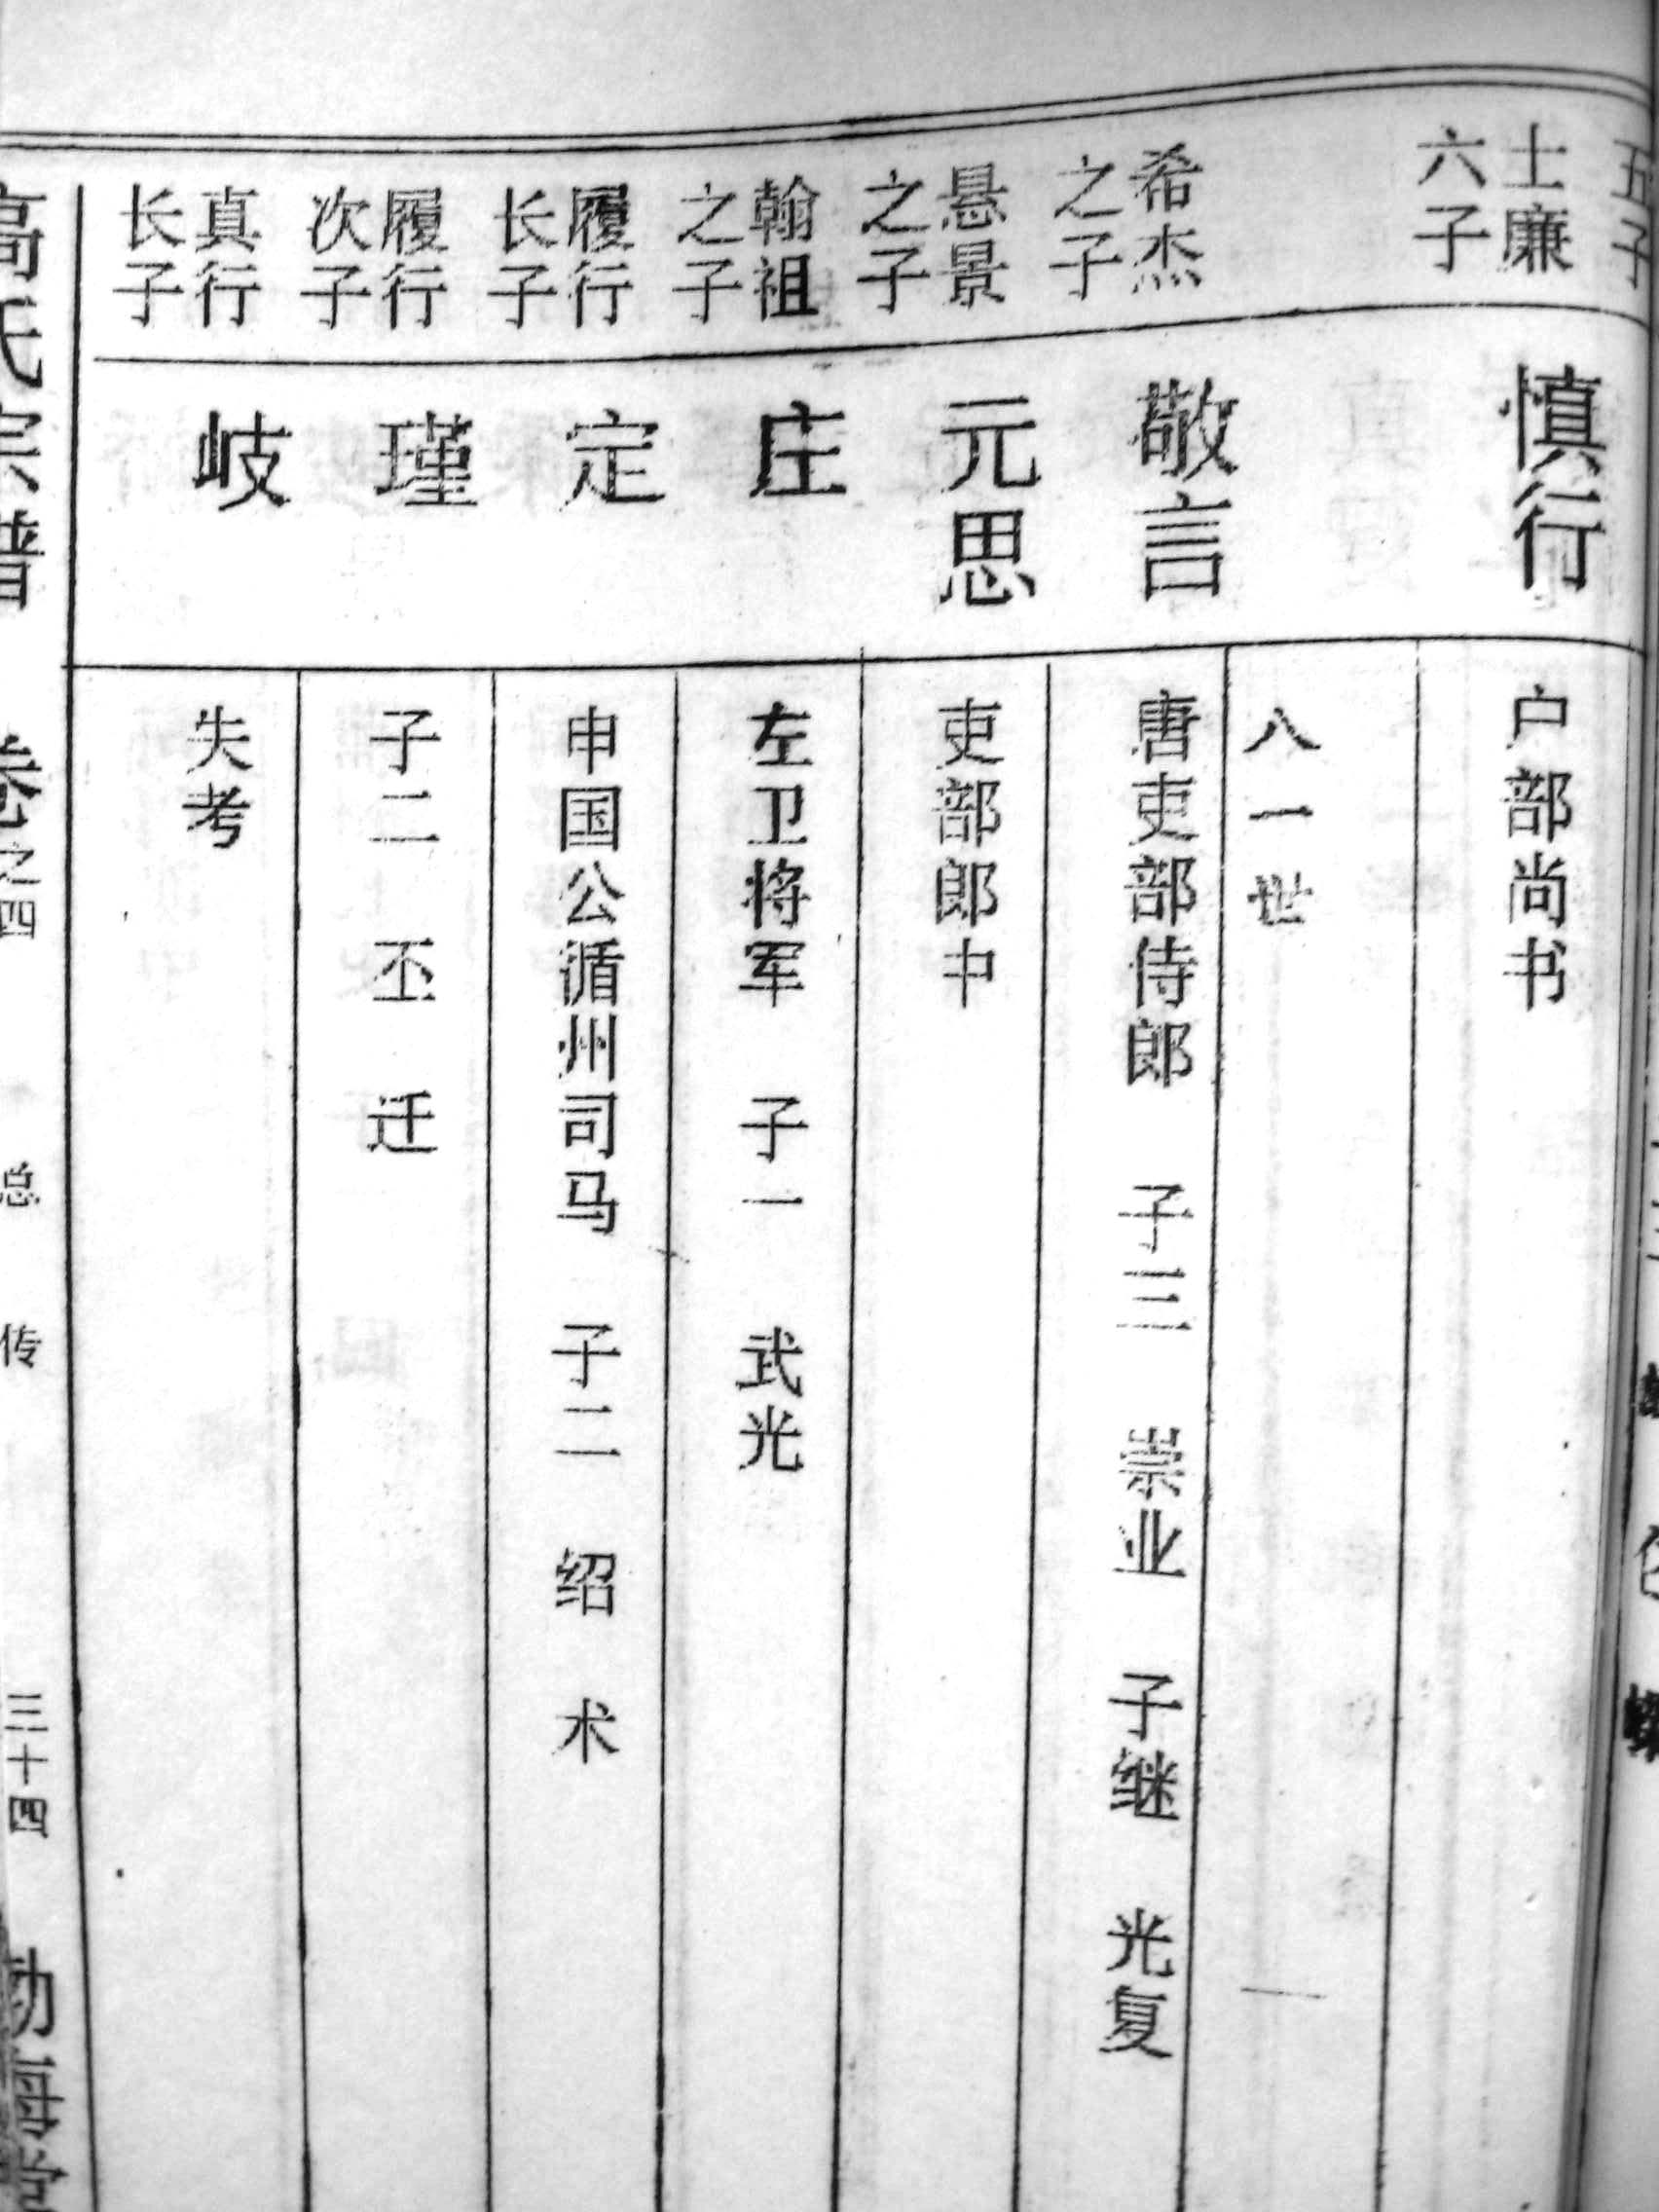 五子
士廉
六子
慎行
户部尚书
八一世
希杰
之子
敬言
唐吏部侍郎 子三 崇业 子继 光复
悬景
之子
元思
吏部郎中
翰祖
之子
庄
左卫将军 子一 武光
履行
长子
定
申国公循州司马 子二 绍 术
履行
次子
瑾
子二 丕 迁
真行
长子
岐
失考
高氏宗谱 卷之四 总传 三十四